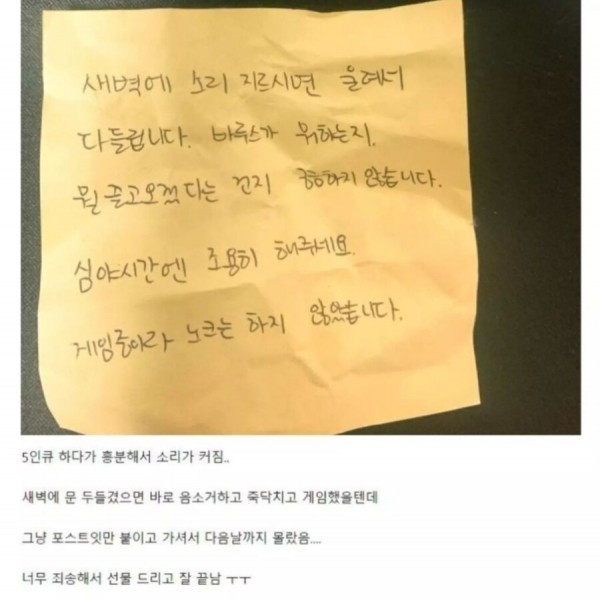 새벽에 소리 지르시면 울려서
다들립니다. 바루스가 뭐하는지.
뭘 끌고오겠다는 건지 궁금하지 않습니다.
심야시간엔 조용히 해주세요.
게임중이라 노크는 하지 않았습니다.
5인큐 하다가 흥분해서 소리가 커짐..
새벽에 문 두들겼으면 바로 음소거하고 죽닥치고 게임했을텐데
그냥 포스트잇만 붙이고 가셔서 다음날까지 몰랐음....
너무 죄송해서 선물 드리고 잘 끝남 ㅜㅜ